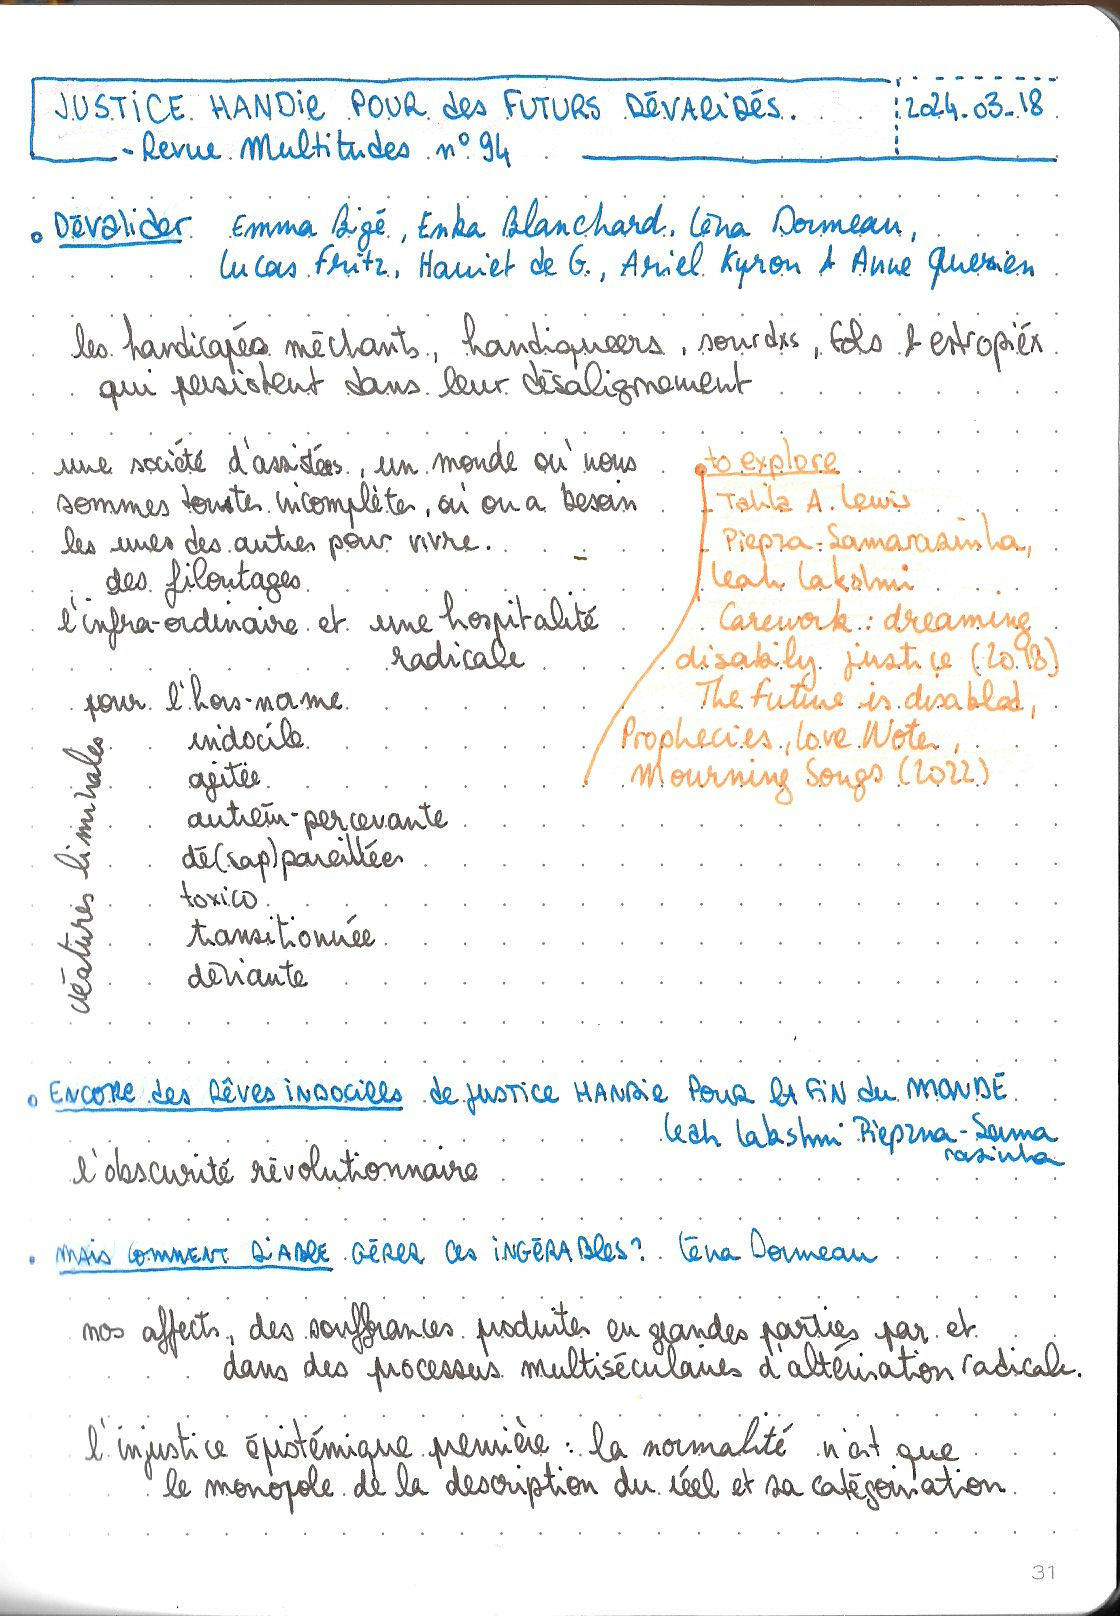 JUSTICE HANDIE POUR des FUTURS DÉVALIDÉS.
2024.03.18
- Revue Multitudes n° 94
Dévalider Emma Bigé, Enka Blanchard, Léna Dormeau,
Lucas Fritz, Harriet de G., Ariel Kyrou & Anne Querrien
les handicapées méchants, handiqueers, sourdxs, fols & estropiéx
qui persistent dans leur désalignement
une société d'assistées, un monde où nous
sommes toustes incomplètes, où on a besoin
les unes des autres pour vivre.
des filoutages
l'infra-ordinaire et une hospitalité
radicale
pour l'hors-name
indocile
agitée
autrem-percevante
dé(sap)pareillées
toxico
transitionnée
déviante
créatures liminales
to explore
- Talila A. Lewis
- Piepzna-Samarasinha,
Leah Lakshmi
Carework : dreaming
disabily justice (2018)
The future is disabled,
Prophecies, love Notes,
Mourning Songs (2022)
ENCORE des Rêves iNDOCILES de JUSTICE HANDIE POUR LA FIN du MONDE
Leah Lakshmi Piepzna-Sama
rasinha
l'obscurité révolutionnaire
MAIS COMMENT DIABLE GÉRER CES INGÉRABLES ? Léna Dormeau
nos affects, des souffrances produites en grandes parties par et
dans des processus multiséculaires d'altérisation radicale.
l'injustice épistémique première : la normalité n'est que
le monopole de la description du réel et sa catégorisation
31